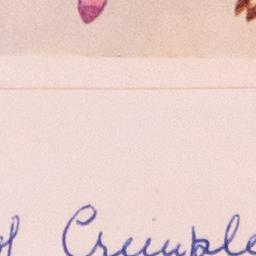 of Crumple